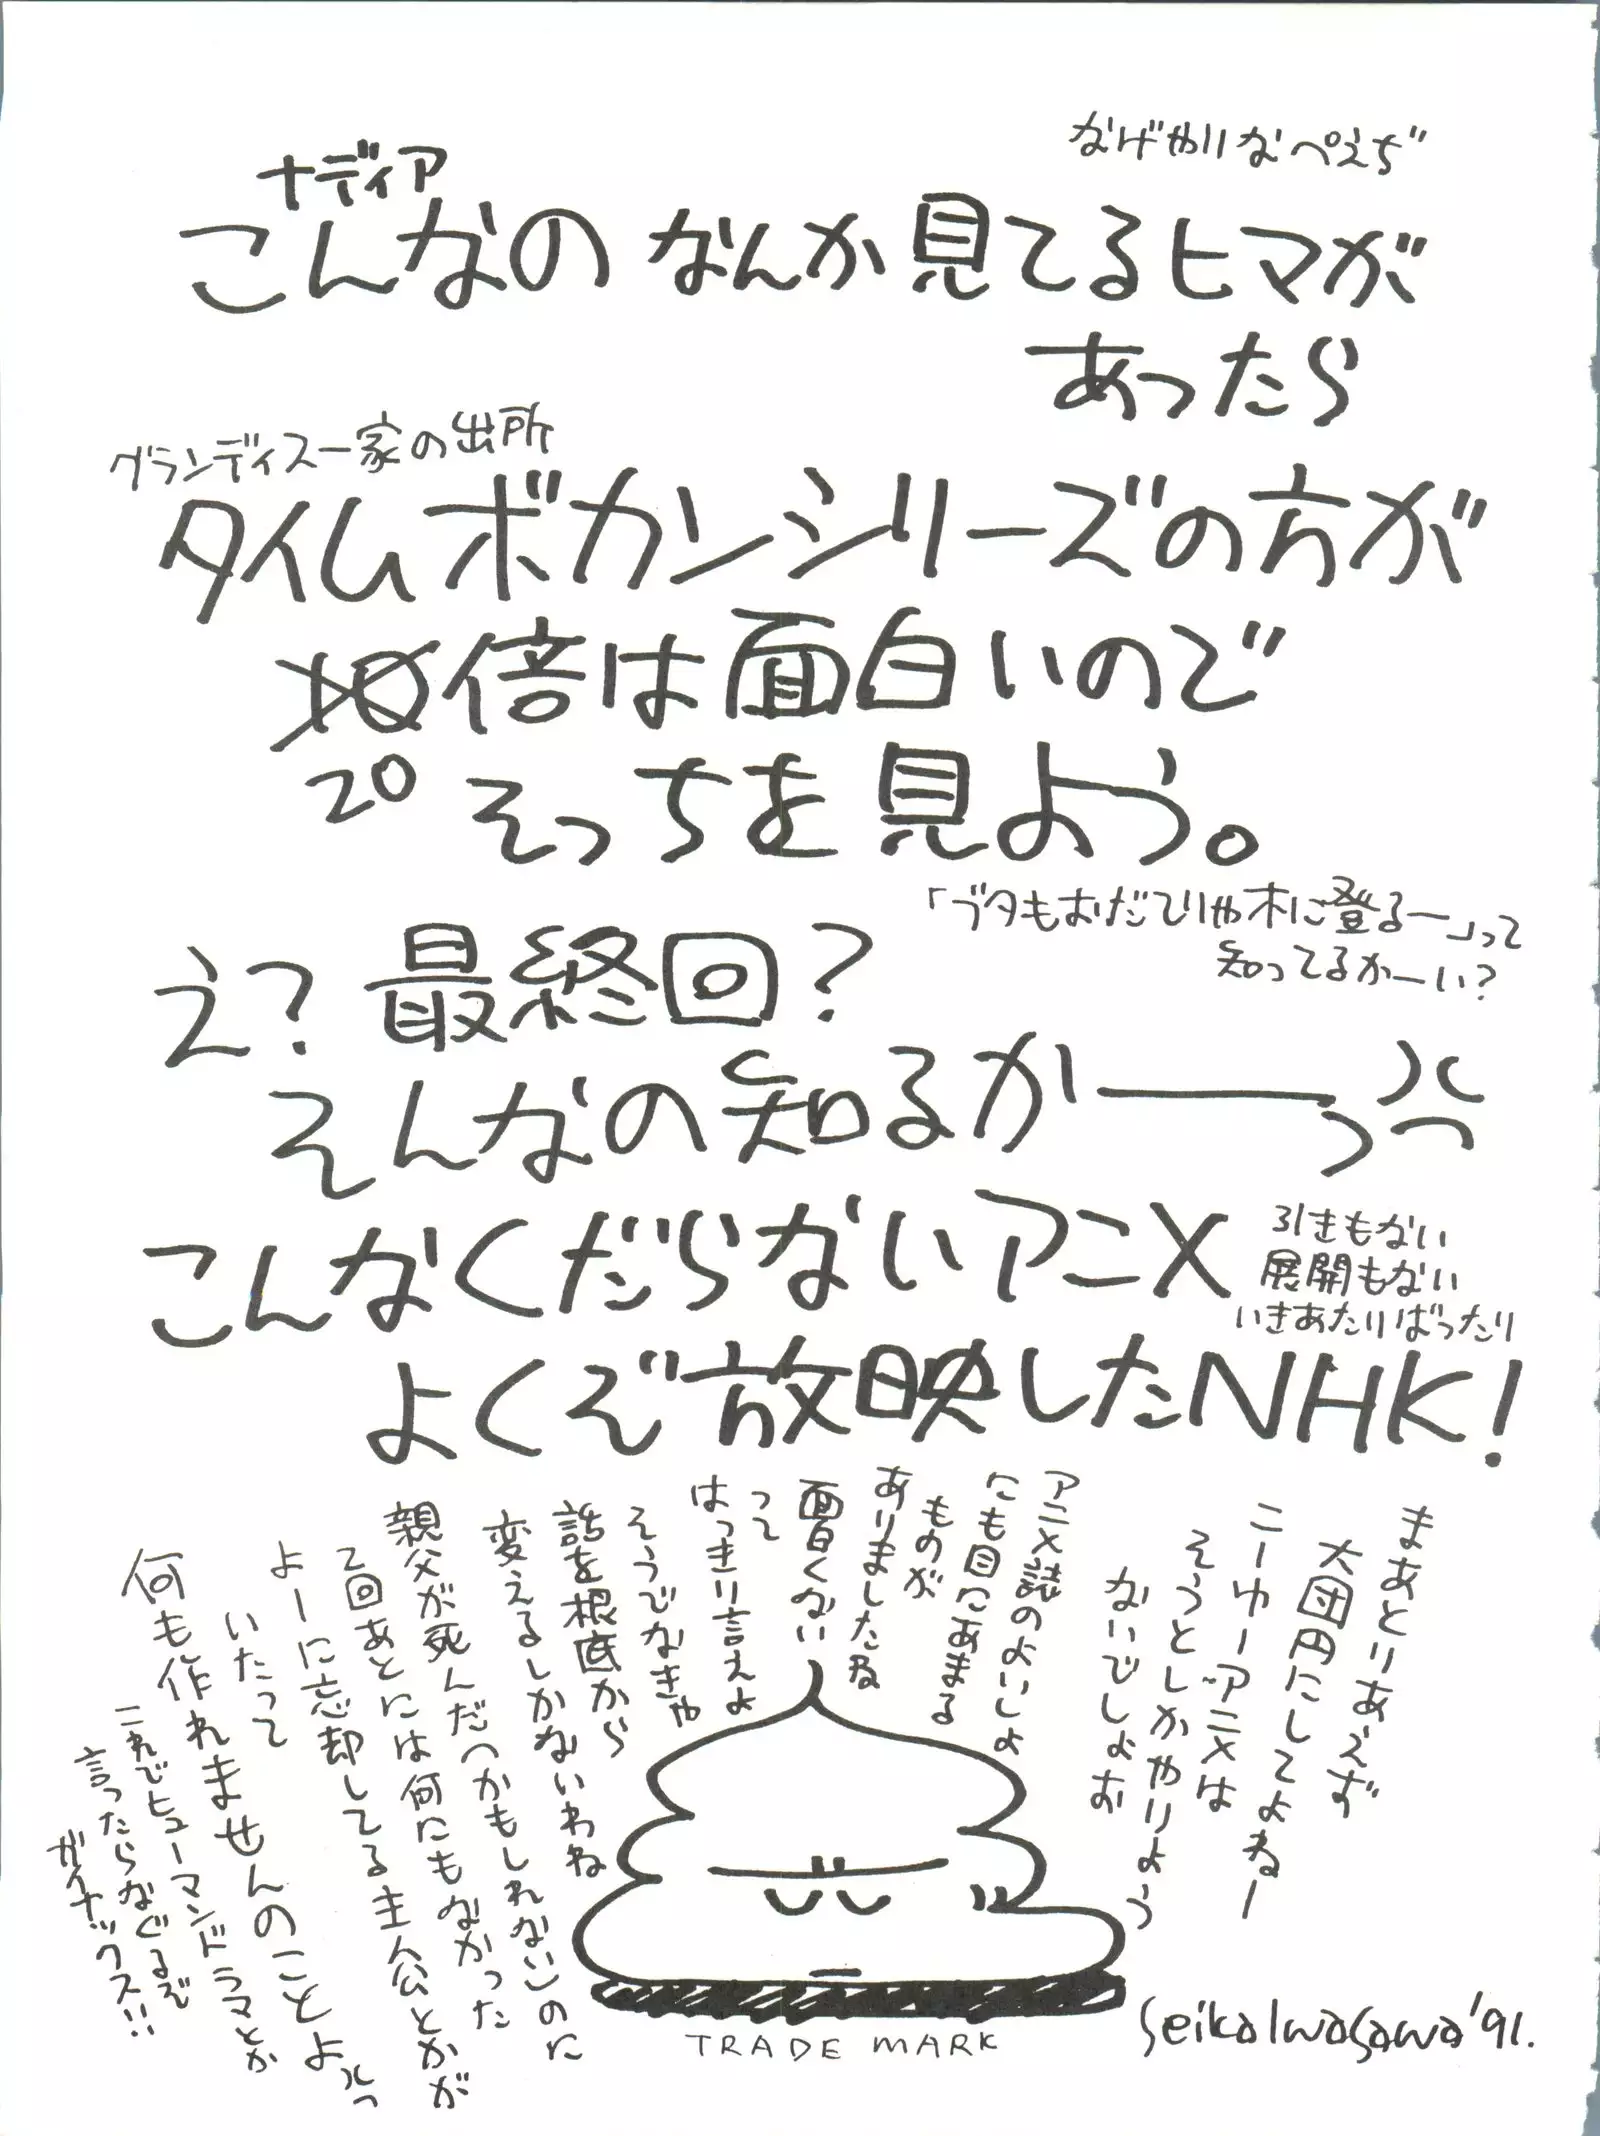 なげやりなぺえぢ
ナディア
こんなの なんか見てるヒマが
あったら
グランディス一家の出所
タイムボカンシリーズの方が
10倍は面白いので
20 そっちを見よう。
「ブタもおだてりゃ木に登るー」って
知ってるかーい?
え? 最終回?
そんなの知るかーーっ
こんなくだらないアニメ
引きもない
展開もない
いきあたりばったり
よくぞ放映したNHK!
まあとりあえず
大団円にしてよねー
こーゆーアニメは
そうとしかやりよう
ないでしょお
アニメ誌のよいしょ
にも目にあまる
ものが
ありましたね
面白くない
って
はっきり言えよ
そうでなきゃ
話を根底から
変えるしかないわね
親父が死んだ(かもしれない)のに
2回あとには何にもなかった
よーに忘却してる主人公とかが
いたって
何も作れませんのことよっ
これでヒューマンドラマとか
言ったらなぐるぞ
ガイナックス!!
TRADE MARK
Seiko Iwasawa '91.